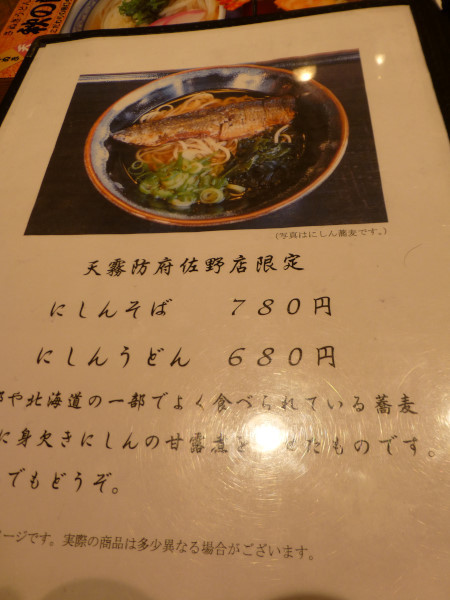 秋の
(写真はにしん蕎麦です。)
天霧防府佐野店限定
にしんそば 780円
にしんうどん 680円
や北海道の一部でよく食べられている蕎麦
に身欠きにしんの甘露煮を せたものです。
でもどうぞ。
ージです。実際の商品は多少異なる場合がございます。